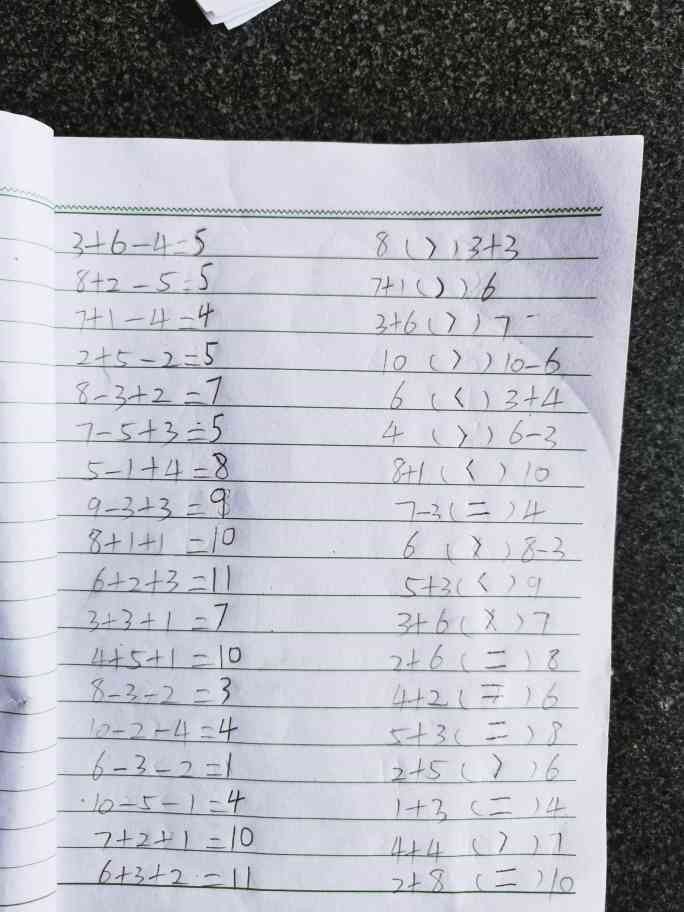 3+6-4=5 8(>)3+3
8+2-5=5 7+1(>)6
7+1-4=4 3+6(>)7
2+5-2=5 10(>)10-6
8-3+2=7 6(<)3+4
7-5+3=5 4(>)6-3
5-1+4=8 8+1(<)10
9-3+3=9 7-3(=)4
8+1+1=10 6(>)8-3
6+2+3=11 5+3(<)9
3+3+1=7 3+6(>)7
4+5+1=10 2+6(=)8
8-3-2=3 4+2(=)6
10-2-4=4 5+3(=)8
6-3-2=1 2+5(>)6
10-5-1=4 1+3(=)4
7+2+1=10 4+4(>)7
6+3+2=11 2+8(=)10